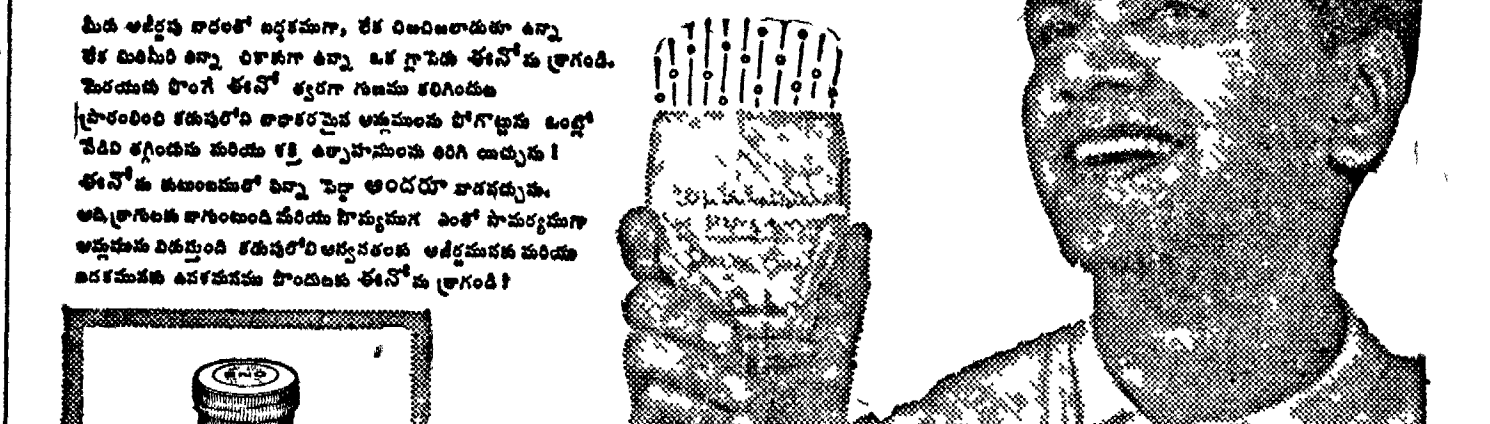 మీరు అజీర్ణపు బాధలతో బద్ధకముగా, లేక చిటచిటలాడుతూ ఉన్నా
లేక మితిమీరి తిన్నా చికాకుగా ఉన్నా ఒక గ్లాసెడు ఈనోను త్రాగండి.
మెరయుచు పొంగే ఈనో త్వరగా గుణము కలిగించుట
ప్రారంభించి కడుపులోని బాధాకరమైన ఆమ్లములను పోగొట్టును ఒంట్లో
వేడిని తగ్గించును మరియు శక్తి ఉత్సాహములను తిరిగి యిచ్చును !
ఈనోను కుటుంబములో చిన్నా పెద్దా అందరూ వాడవచ్చును.
అది త్రాగుటకు బాగుంటుంది మరియు సౌమ్యముగ ఎంతో సామర్థ్యముగా
ఆమ్లమును విడుస్తుంది కడుపులోని అస్వస్థతలకు అజీర్ణమునకు మరియు
బడకమునకు ఉపశమనము పొందుటకు ఈనోను త్రాగండి !
ENO